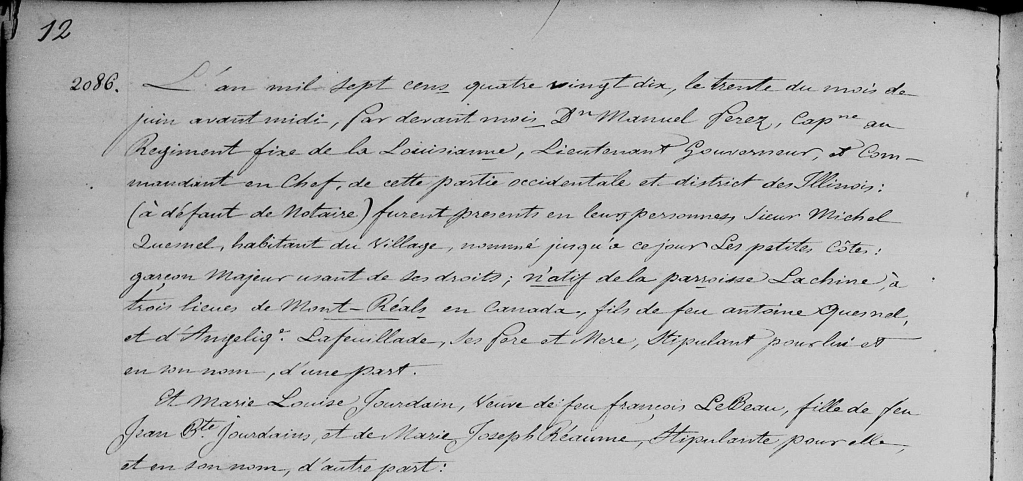 12
2086. L'an mil sept cens quatre vingt dix, le trente du mois de
juin avant midi, par devant mois Dn Manuel Perez, Capne au
Regiment fixe de la Louisianne, Lieutenant Gouverneur, et Com-
mandant en Chef, de cette partie occidentale et district des Illinois:
(à défaut de Notaire) furent presents en leurs personnes, Sieur Michel
Quesnel, habitant du Village, nommé jusqu'a ce jour Les petites Côtes:
garçon Majeur usant de ses droits; natif de la parroisse Lachine, à
trois lieues de Mont-Réals en Canada, fils de feu antoine Quesnel,
et d'Angeliqe. Lafeuillade, ses Pere et Mere, Stipulant pour lui et
en son nom, d'une part.
Et Marie Louise Jourdain, Veuve de feu françois LeBeau, fille de feu
Jean Bte Jourdains, et de Marie Joseph Réaume, Stipulante pour elle,
et en son nom, d'autre part: